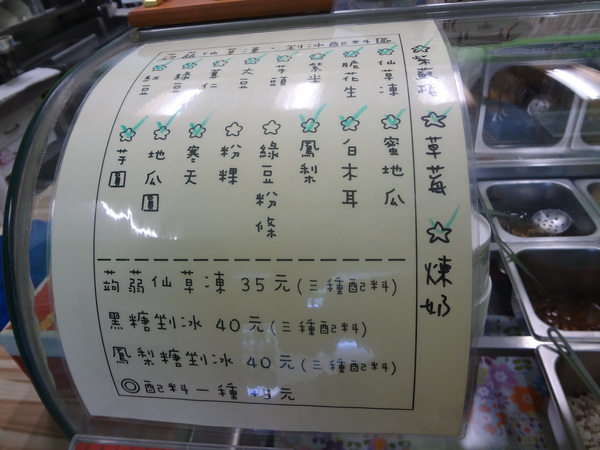 蒟蒻仙草凍、剉冰配料區
☆仙草凍
☆脆花生
☆紫米
☆芋頭
☆大豆
☆薏仁
☆綠豆
☆紅豆
☆蜜地瓜
☆白木耳
☆鳳梨
☆綠豆粉條
☆粉粿
☆寒天
☆地瓜圓
☆芋圓
☆草莓
☆煉奶
蒟蒻仙草凍 35元(三種配料)
黑糖剉冰 40元(三種配料)
鳳梨糖剉冰 40元(三種配料)
◎配料一種 元